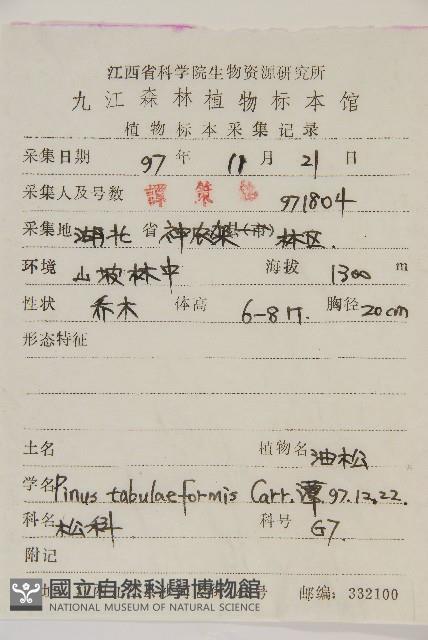 江西省科学院生物资源研究所
九江森林植物标本馆
植物标本采集记录
采集日期 97 年 11 月 21 日
采集人及号数 譚策铭 971804
采集地 湖北 省 神农架 (市) 林区
环境 山坡林中 海拔 1300 m
性状 乔木 体高 6-8 m. 胸径 20cm
形态特征
土名 植物名 油松
学名 Pinus tabulaeformis Carr. 譚 97.12.22.
科名 松科 科号 G7.
附记
國立自然科學博物館
NATIONAL MUSEUM OF NATURAL SCIENCE
号 邮编: 332100